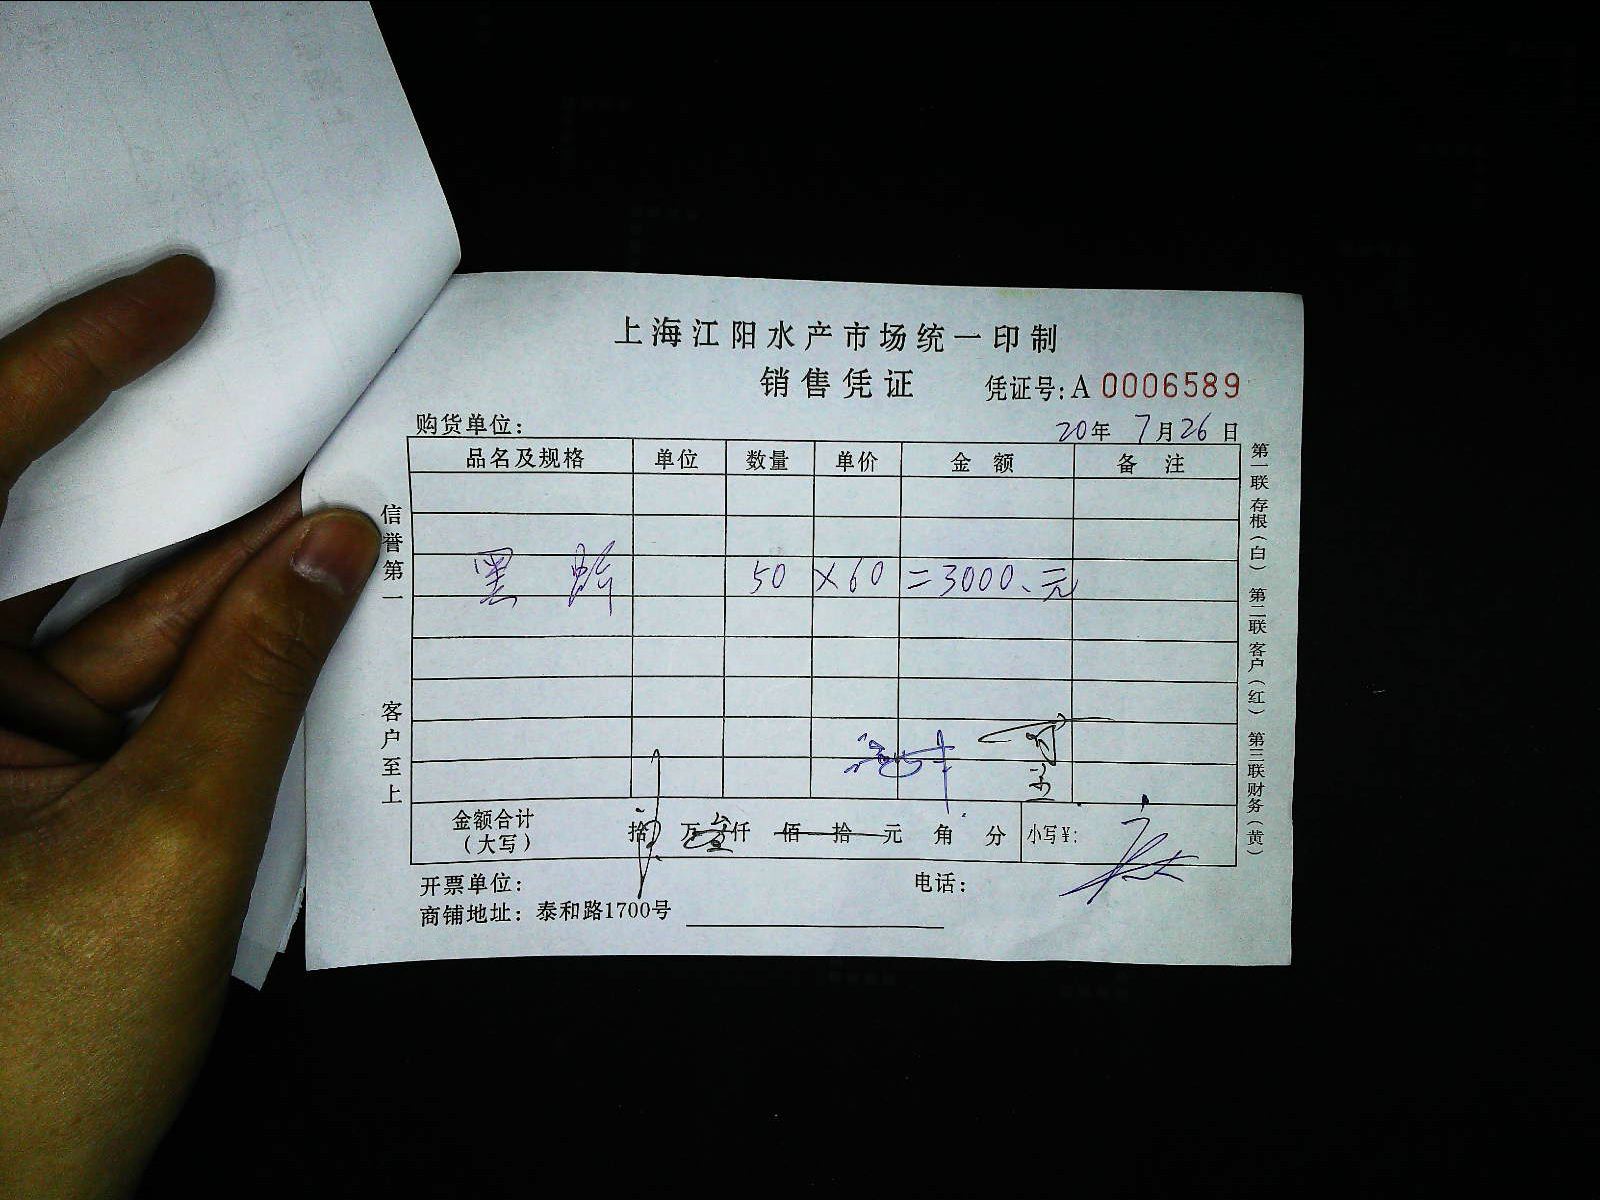 上海江阳水产市场统一印制
销售凭证
凭证号: A 0006589
购货单位:
20年 7月26日
品名及规格 单位 数量 单价 金额 备注
黑 50 ×60 =3000、元
金额合计
(大写)
拾 万 仟 佰 拾 元 角 分 小写¥:
开票单位: 电话:
商铺地址: 泰和路1700号
信誉第一 客户至上
第一联存根(白) 第二联客户(红) 第三联财务(黄)